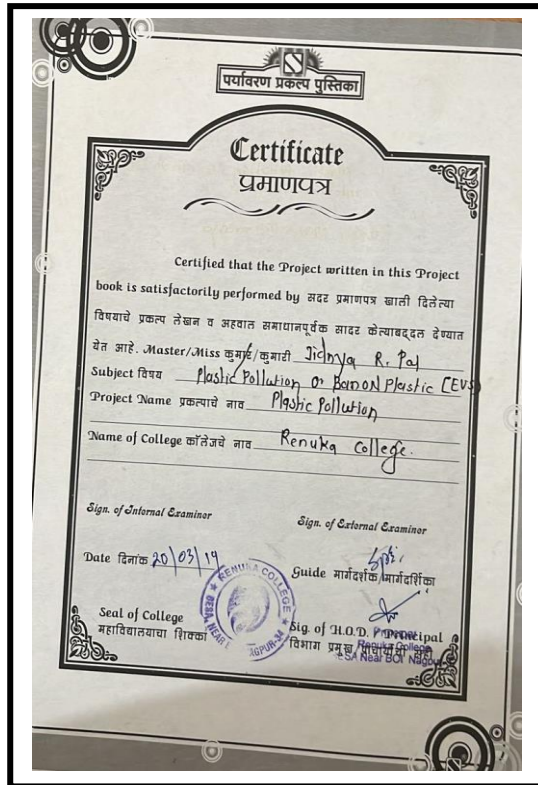 पर्यावरण प्रकल्प पुस्तिका
Certificate
प्रमाणपत्र
Certified that the Project written in this Project
book is satisfactorily performed by सदर प्रमाणपत्र खाली दिलेल्या
विषयाचे प्रकल्प लेखन व अहवाल समाधानपूर्वक सादर केल्याबद्दल देण्यात
येत आहे. Master/Miss कुमार/कुमारी Jidnya R. Pal
Subject विषय Plastic Pollution or Ban on Plastic [EVS]
Project Name प्रकल्पाचे नाव Plastic Pollution
Name of College कॉलेजचे नाव Renuka College.
Sign. of Internal Examiner
Sign. of External Examiner
Date दिनांक 20/03/19
Guide मार्गदर्शक/मार्गदर्शिका
RENUKA COLLEGE
BESA, NEAR NAGPUR-34
Seal of College
महाविद्यालयाचा शिक्का
Sig. of H.O.D. / Principal
विभाग प्रमुख / प्राचार्यांची सही
Principal
Renuka College
BESA Near BOT Nagpur